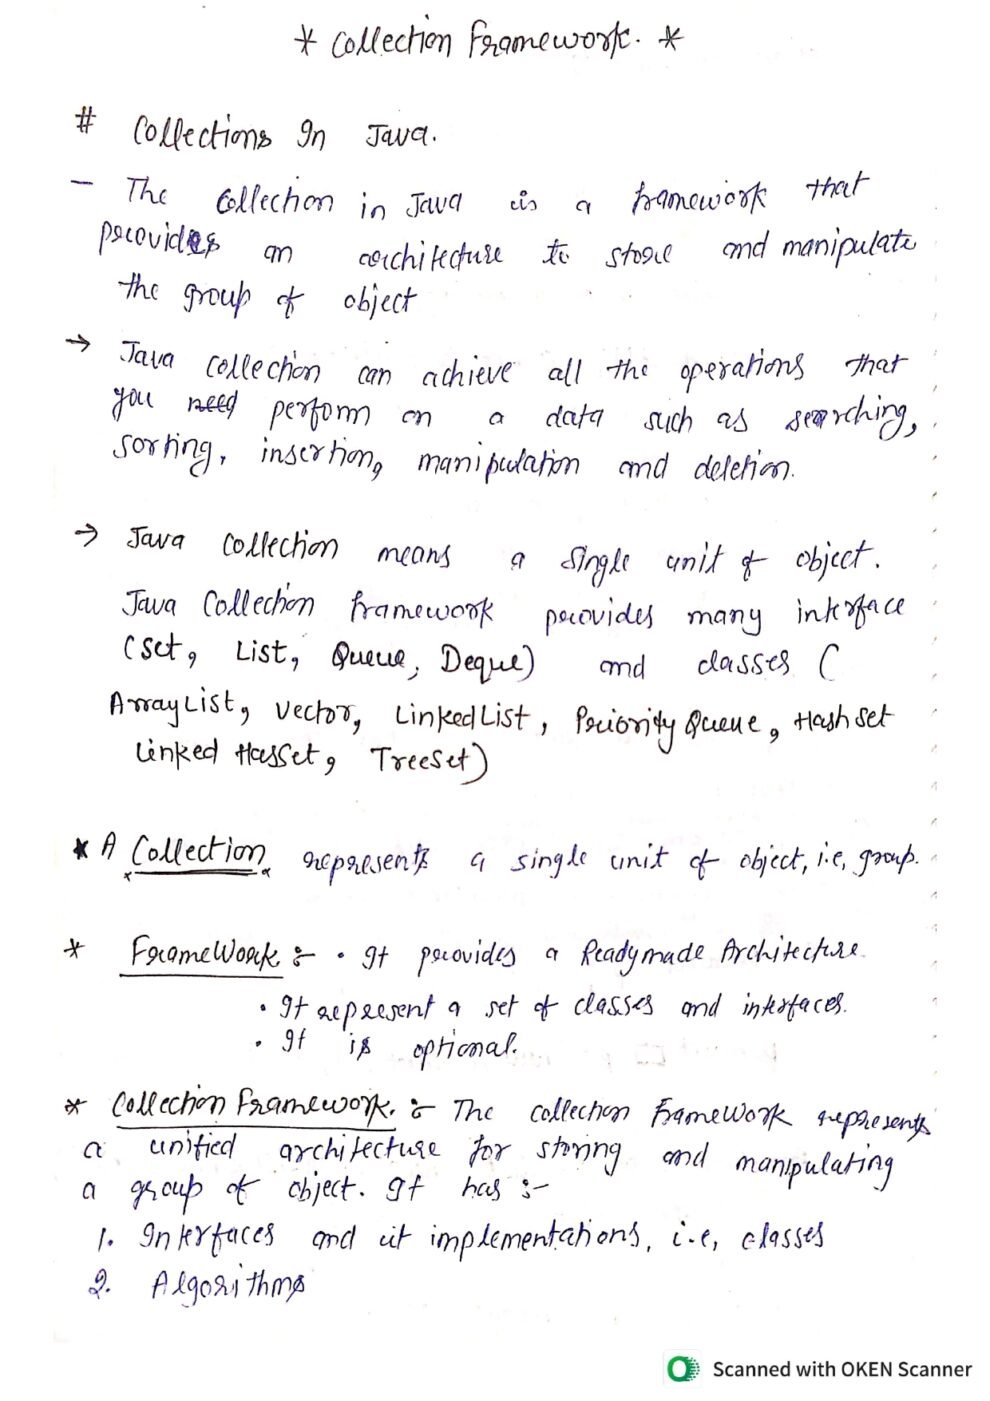 * Collection Framework. *
# Collections In Java.
- The Collection in Java is a framework that
provides an architecture to store and manipulate
the group of object
→ Java Collection can achieve all the operations that
you need perform on a data such as searching,
sorting, insertion, manipulation and deletion.
→ Java Collection means a single unit of object.
Java Collection framework provides many interface
(set, List, Queue, Deque) and classes (
ArrayList, Vector, LinkedList, PriorityQueue, Hashset
Linked HasSet, TreeSet)
* A Collection represents a single unit of object, i.e, group.
* FrameWork :- • It provides a Readymade Architecture.
• It represent a set of classes and interfaces.
• It is optional.
* Collection Framework. :- The collection FrameWork represents
a unified architecture for storing and manipulating
a group of object. It has :-
1. Interfaces and it implementations, i.e, classes
2. Algorithms
Scanned with OKEN Scanner